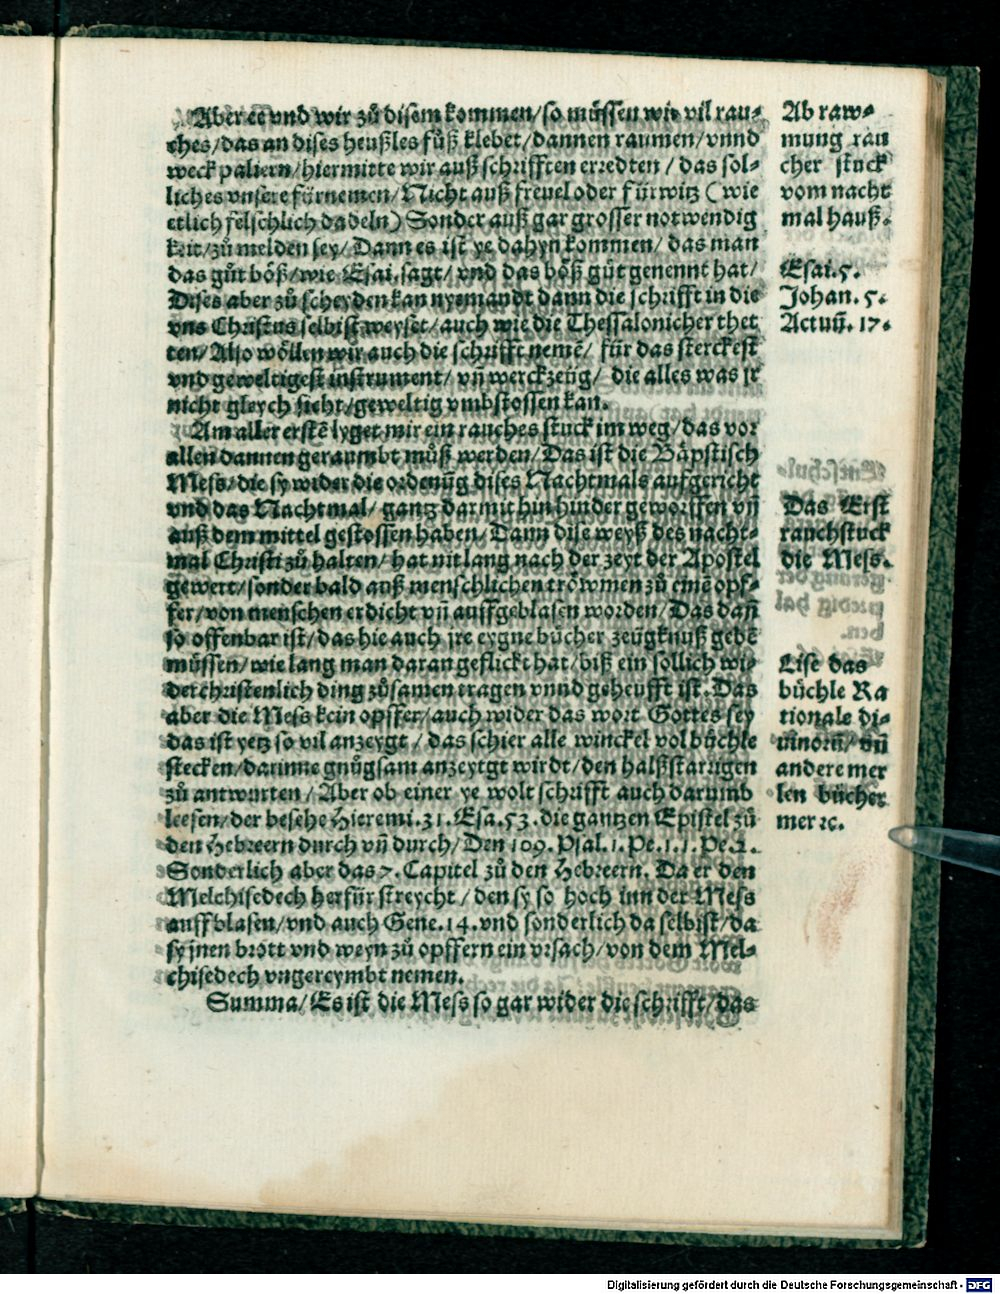 Aber ee vnd wir zů disem kommen/so müssen wir vil rau⸗
ches/das an dises heußles fůß klebet/dannen raumen/vnnd
weck paliern/hiermitte wir auß schrifften erredten/das sol⸗
liches vnsere fürnemen/Nicht auß freuel oder fürwitz (wie
etlich felschlich dadeln) Sonder auß gar grosser notwendig
keit/zů melden sey/Dann es ist ye dahyn kommen/das man
das gůt bőß/wie Esai. sagt/vnd das bőß gůt genennt hat/
Dises aber zů scheyden kan nyemandt dann die schrifft in die
vns Christus selbist weyset/auch wie die Thessalonicher thet
ten/Also wőllen wir auch die schrifft nemē/für das sterckest
vnd geweltigest instrument/vn̄ werckzeüg/die alles was jr
nicht gleych sicht/geweltig vmbstossen kan.
Am aller erstē lyget mir ein rauches stuck im weg/das vor
allen dannen geraumbt můß werden/Das ist die Bäpstisch
Mess/die sy wider die ordenūg dises Nachtmals aufgericht
vnd das Nachtmal/gantz darmit hin hinder geworffen vn̄
auß dem mittel gestossen haben/Dann dise weyß des nacht⸗
mal Christi zů halten/hat nit lang nach der zeyt der Apostel
gewert/sonder bald auß menschlichen trőwmen zů einē opf⸗
fer/von menschen erdicht vn̄ auffgeblasen worden/Das dañ
so offenbar ist/das hie auch jre eygne bücher zeügknuß gebē
müssen/wie lang man daran geflickt hat/biß ein sollich wi⸗
derchristenlich ding zůsamen tragen vnnd geheufft ist. Das
aber die Mess kein opffer/auch wider das wort Gottes sey
das ist yetz so vil anzeygt/das schier alle winckel vol büchle
stecken/darinne gnůgsam anzeytgt wirdt/den halßstarrigen
zů antwurten/Aber ob einer ye wolt schrifft auch darumb
leesen/der besehe Hieremi.31. Esa.53. die gantzen Epistel zů
den Hebreern durch vn̄ durch/Den 109. Psal.1. Pe.1.1. Pe.2.
Sonderlich aber das 7. Capitel zů den Hebreern. Da er den
Melchisedech herfür streycht/den sy so hoch inn der Mess
auffblasen/vnd auch Gene.14. vnd sonderlich da selbist/da
sy jnen brott vnd weyn zů opffern ein vrsach/von dem Mel⸗
chisedech vngereymbt nemen.
Summa/Es ist die Mess so gar wider die schrifft/das
Ab raw⸗
mung rau
cher stuck
vom nacht
mal hauß.
Esai.5.
Johan.5.
Actuū.17.
Das Erst
rauchstuck
die Mess.
Lise das
büchle Ra
tionale di⸗
uinorū/vn̄
andere mer
len bücher
mer ꝛc.
Digitalisierung gefördert durch die Deutsche Forschungsgemeinschaft - DFG